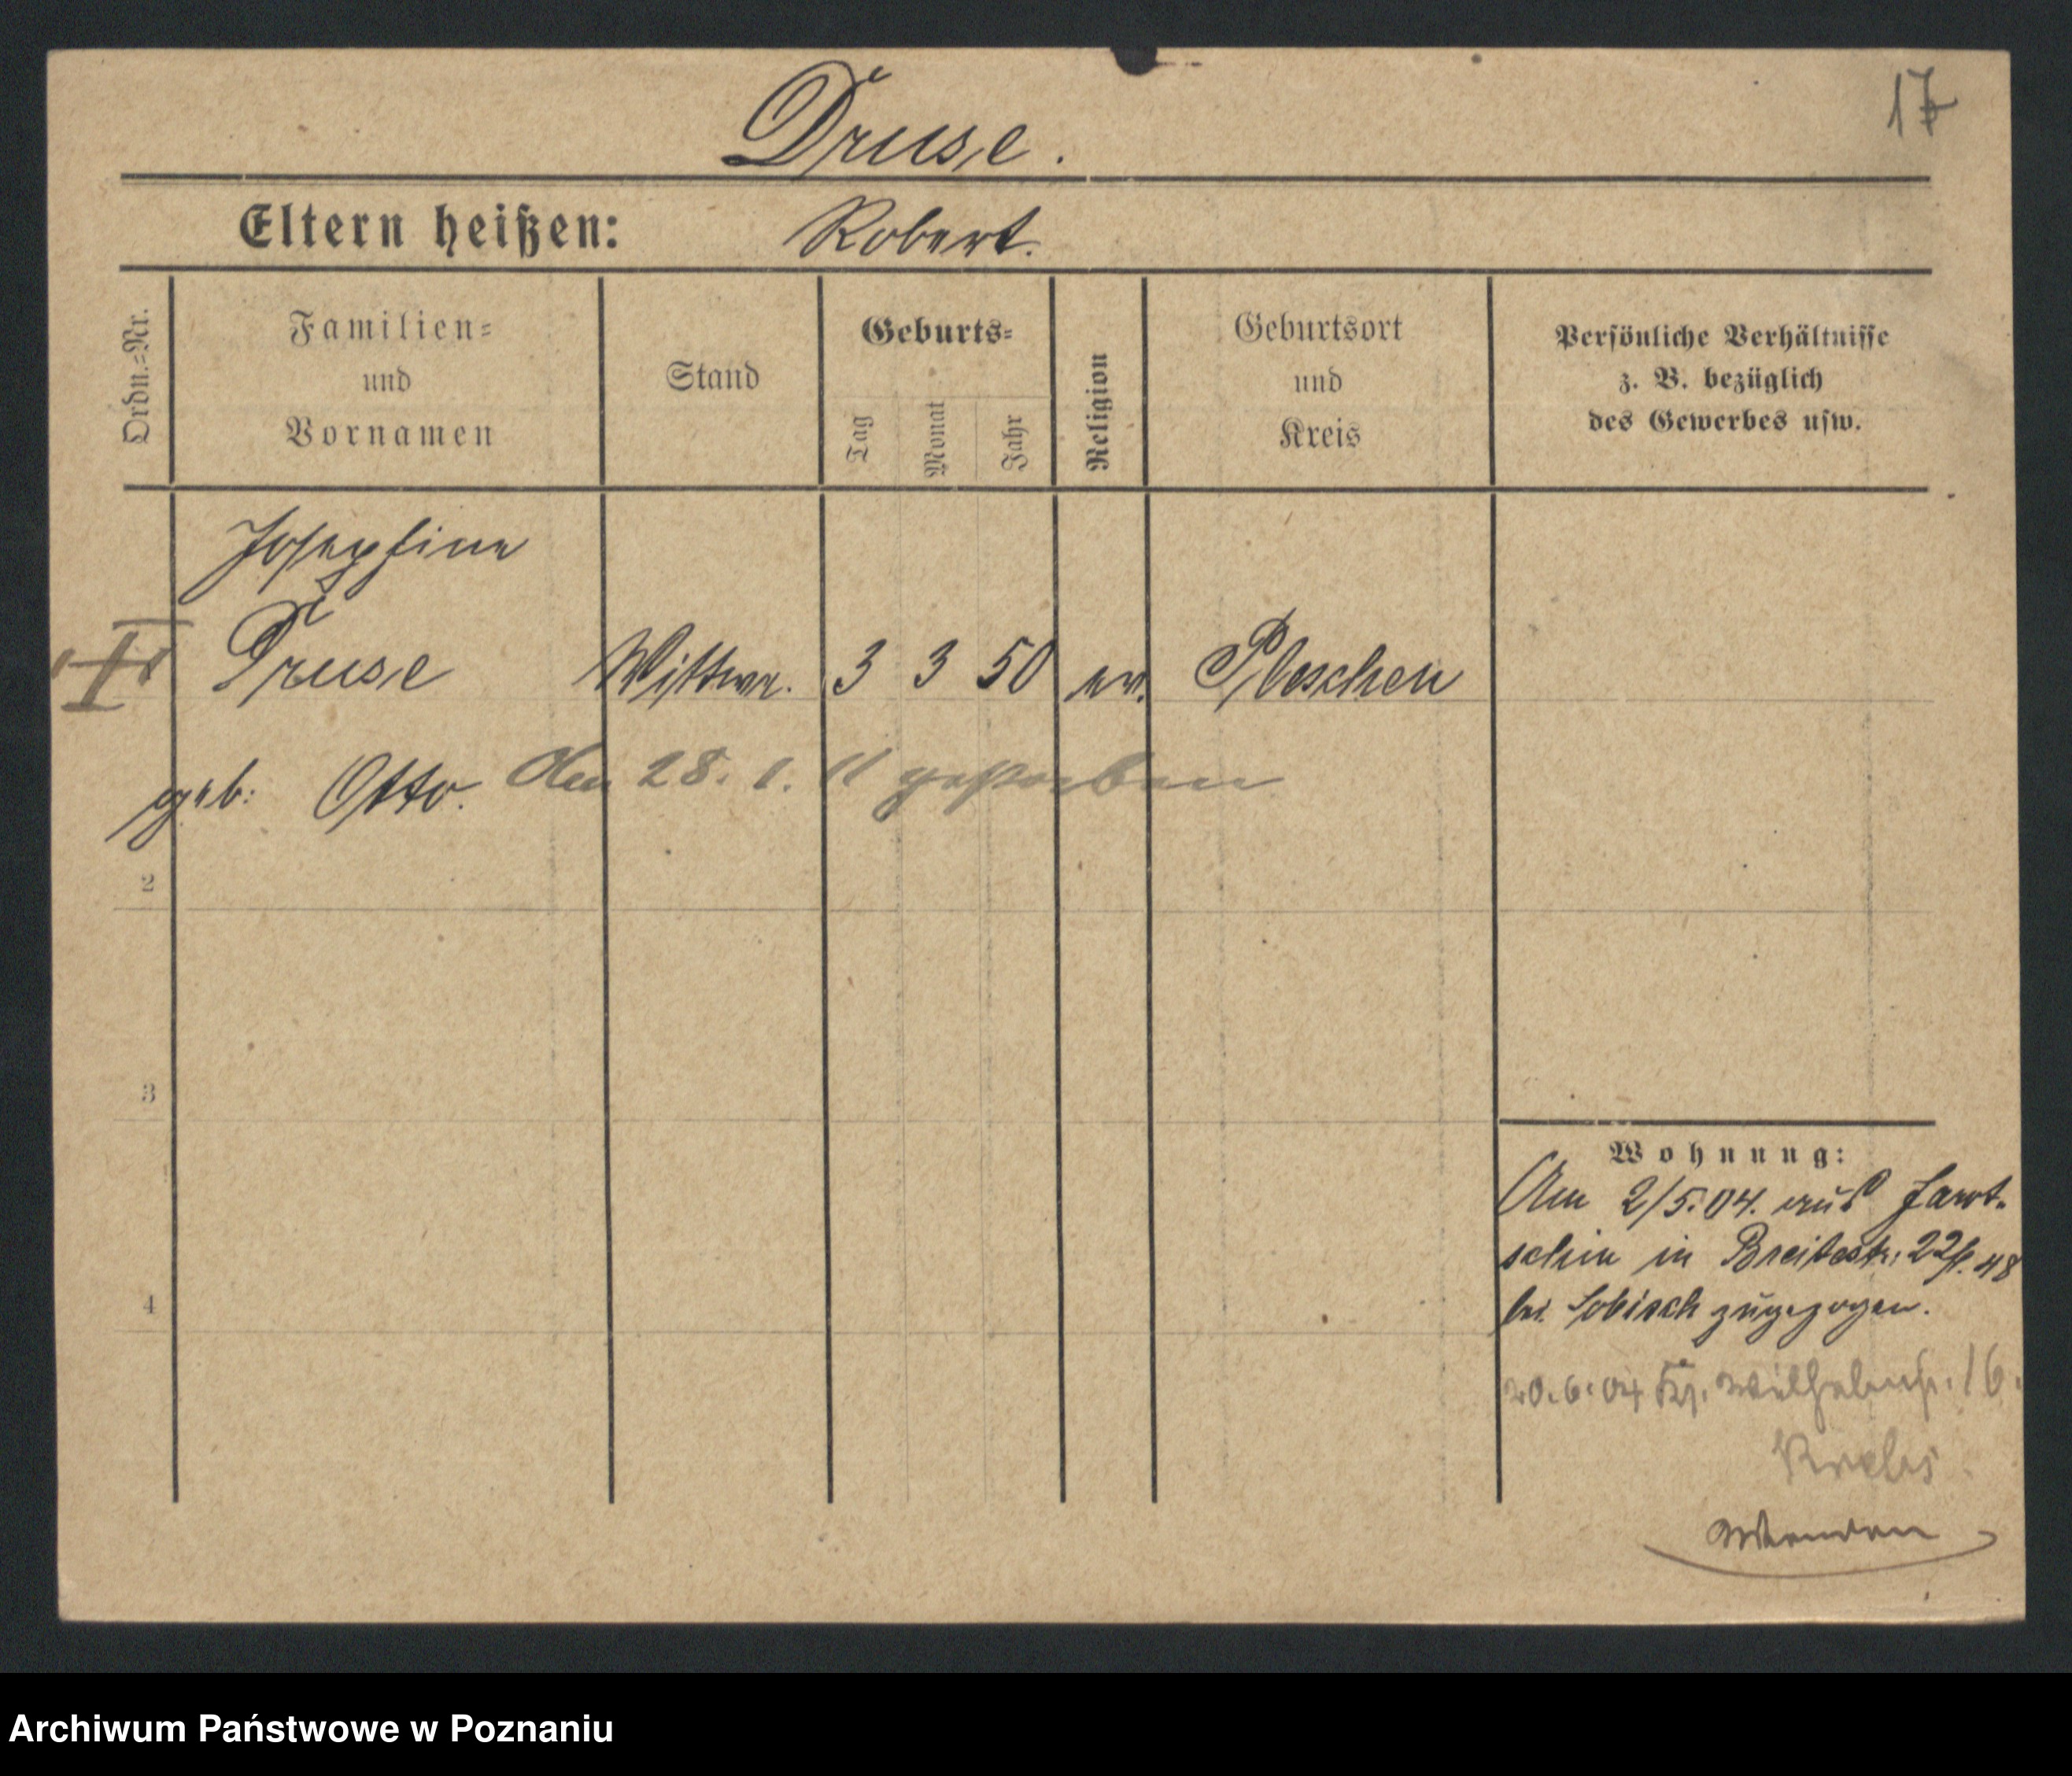 Druse.
17
Eltern heißen: Robert.
Ordn.=Nr.
Familien=
und
Vornamen
Stand
Geburts=
Tag
Monat
Jahr
Religion
Geburtsort
und
Kreis
Persönliche Verhältnisse
z. B. bezüglich
des Gewerbes usw.
Josephine
Druse Wittwe. 3 3 50 ev. Pleschen
geb: Otto. Am 28. 1. 11 gestorben
2
3
4
Wohnung:
Am 2/5.04. aus Jarot-
schin in Breitestr: 22
bei Sobisch zugezogen.
20.6.04 Wilhelmstr. 16.
Krebs
Archiwum Państwowe w Poznaniu